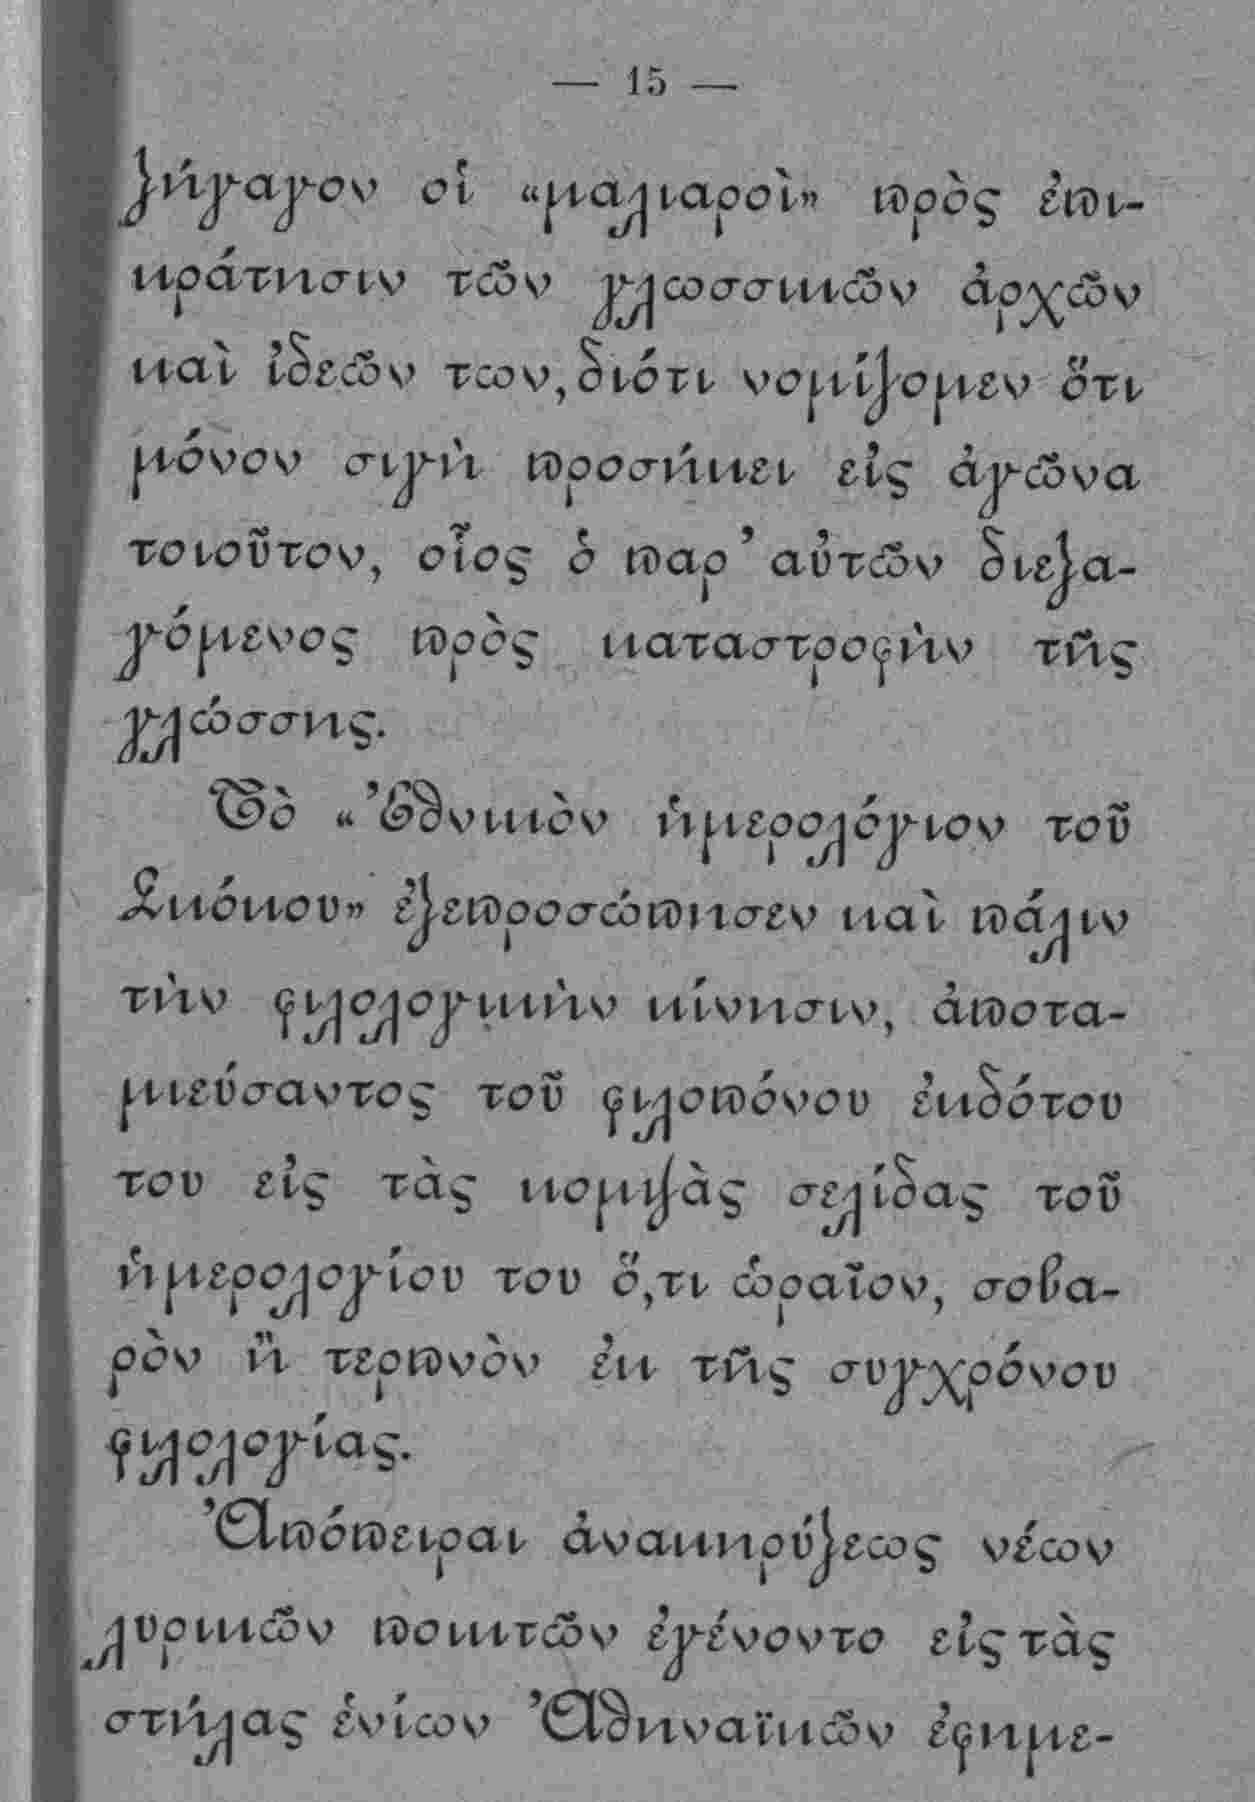 — 15 —
ξήγαγον οἱ «μαλιαροὶ» πρὸς ἐπι-
κράτησιν τῶν γλωσσικῶν ἀρχῶν
καὶ ἰδεῶν των, διότι νομίζομεν ὅτι
μόνον σιγὴ προσήκει εἰς ἀγῶνα
τοιοῦτον, οἷος ὁ παρ' αὐτῶν διεξα-
γόμενος πρὸς καταστροφὴν τῆς
γλώσσης.
Τὸ «Ἐθνικὸν ἡμερολόγιον τοῦ
Σκόκου» ἐξεπροσώπησεν καὶ πάλιν
τὴν φιλολογικὴν κίνησιν, ἀποτα-
μιεύσαντος τοῦ φιλοπόνου ἐκδότου
του εἰς τὰς κομψὰς σελίδας τοῦ
ἡμερολογίου του ὅ,τι ὡραῖον, σοβα-
ρὸν ἢ τερπνὸν ἐκ τῆς συγχρόνου
φιλολογίας.
Ἀπόπειραι ἀνακηρύξεως νέων
λυρικῶν ποιητῶν ἐγένοντο εἰς τὰς
στήλας ἐνίων Ἀθηναϊκῶν ἐφημε-